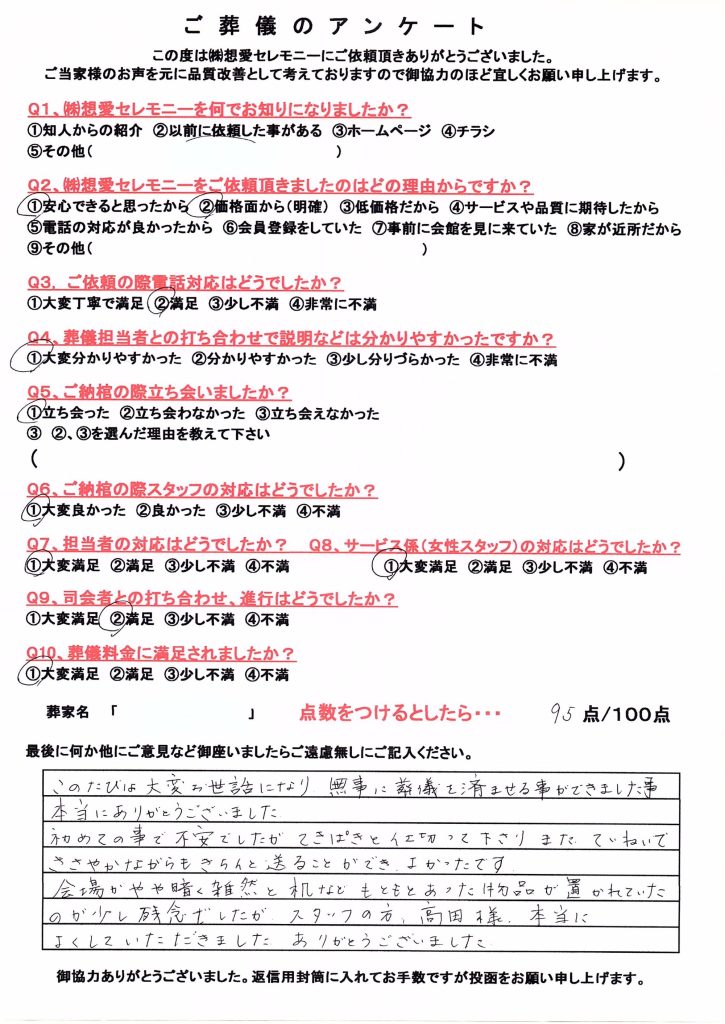 ご葬儀のアンケート
この度は㈱想愛セレモニーにご依頼頂きありがとうございました。
ご当家様のお声を元に品質改善として考えておりますので御協力のほど宜しくお願い申し上げます。
Q1、㈱想愛セレモニーを何でお知りになりましたか？
①知人からの紹介 ②以前に依頼した事がある ③ホームページ ④チラシ
⑤その他( )
Q2、㈱想愛セレモニーをご依頼頂きましたのはどの理由からですか？
①安心できると思ったから ②価格面から(明確) ③低価格だから ④サービスや品質に期待したから
⑤電話の対応が良かったから ⑥会員登録をしていた ⑦事前に会館を見に来ていた ⑧家が近所だから
⑨その他( )
Q3．ご依頼の際電話対応はどうでしたか？
①大変丁寧で満足 ②満足 ③少し不満 ④非常に不満
Q4、葬儀担当者との打ち合わせで説明などは分かりやすかったですか？
①大変分かりやすかった ②分かりやすかった ③少し分りづらかった ④非常に不満
Q5、ご納棺の際立ち会いましたか？
①立ち会った ②立ち会わなかった ③立ち会えなかった
③ ②、③を選んだ理由を教えて下さい
( )
Q6、ご納棺の際スタッフの対応はどうでしたか？
①大変良かった ②良かった ③少し不満 ④不満
Q7、担当者の対応はどうでしたか？ Q8、サービス係(女性スタッフ)の対応はどうでしたか？
①大変満足 ②満足 ③少し不満 ④不満 ①大変満足 ②満足 ③少し不満 ④不満
Q9、司会者との打ち合わせ、進行はどうでしたか？
①大変満足 ②満足 ③少し不満 ④不満
Q10、葬儀料金に満足されましたか？
①大変満足 ②満足 ③少し不満 ④不満
葬家名 「 」 点数をつけるとしたら・・・ 95 点/100点
最後に何か他にご意見など御座いましたらご遠慮無しにご記入ください。
このたびは大変お世話になり、無事に葬儀を済ませる事ができました事
本当にありがとうございました
初めての事で不安でしたが てきぱきと仕切って下さり また、ていねいで
ささやかながらもきちんと送ることができ、よかったです
会場がやや暗く雑然と机など もともとあった物品が置かれていた
のが少し残念でしたが、スタッフの方、高田様、本当に
よくしていただきました ありがとうございました
御協力ありがとうございました。返信用封筒に入れてお手数ですが投函をお願い申し上げます。